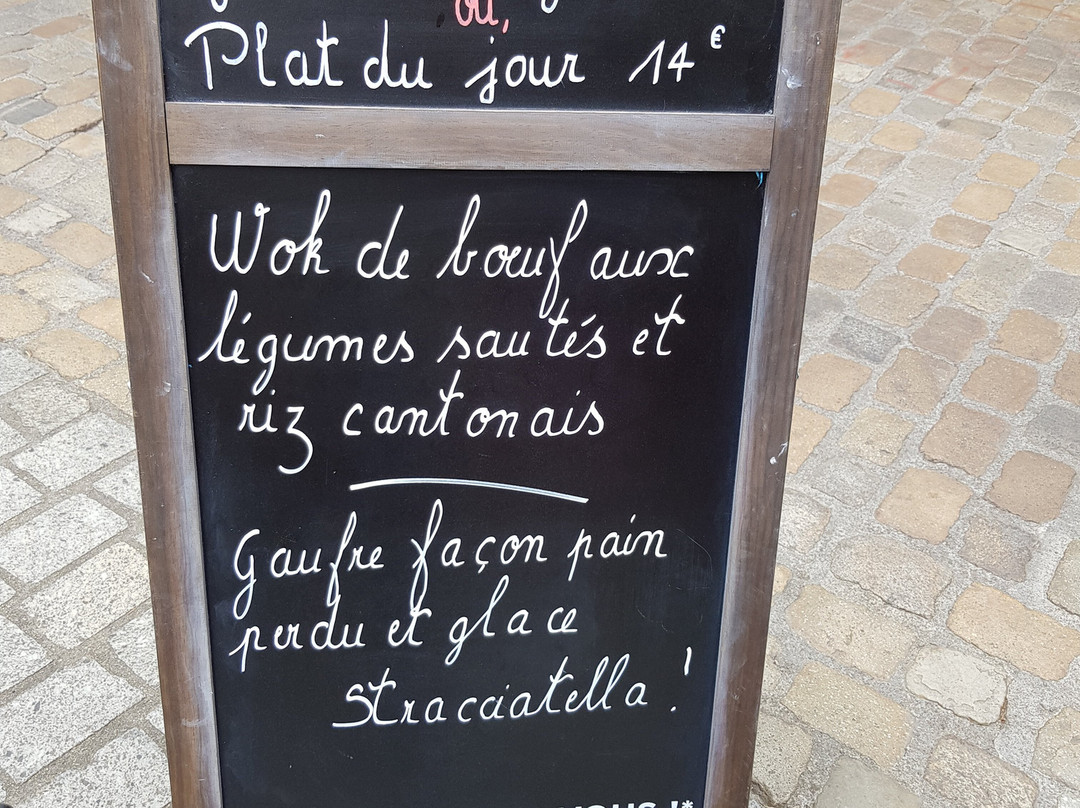 ou,
Plat du jour 14€
Wok de bœuf aux
légumes sautés et
riz cantonais
Gaufre façon pain
perdu et glace
stracciatella !